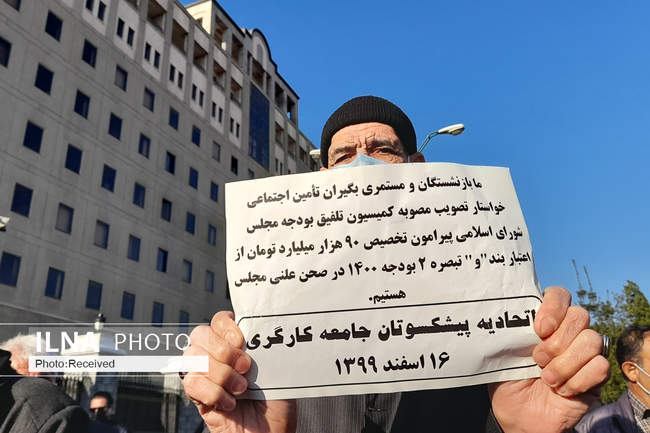 ما بازنشستگان و مستمری بگیران تأمین اجتماعی
خواستار تصویب مصوبه کمیسیون تلفیق بودجه مجلس
شورای اسلامی پیرامون تخصیص ۹۰ هزار میلیارد تومان از
اعتبار بند "و" تبصره ۲ بودجه ۱۴۰۰ در صحن علنی مجلس
هستیم.
اتحادیه پیشکسوتان جامعه کارگری
۱۶ اسفند ۱۳۹۹
ILNA PHOTO
Photo:Received